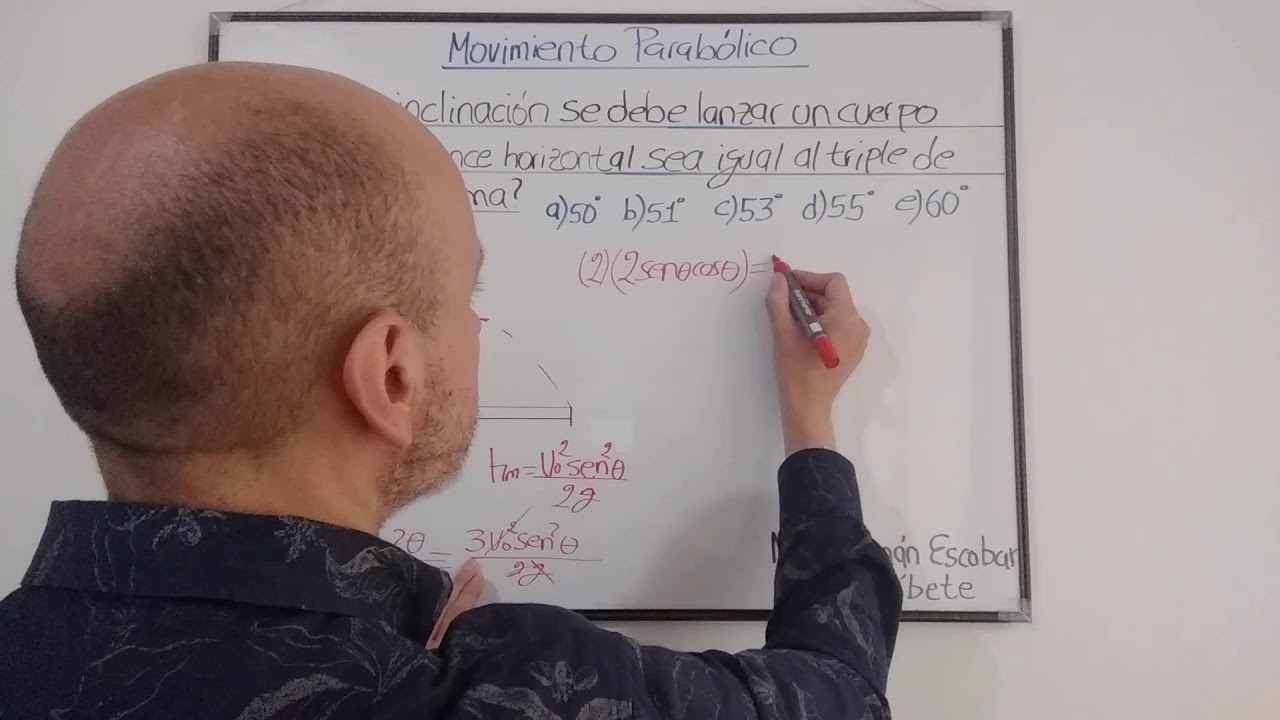 Movimiento Parabólico
inclinación se debe lanzar un cuerpo
horizontal sea igual al triple de
a)50° b)51° c)53° d)55° e)60°
(2)(2senθcosθ)=
Hm=V₀²sen²θ/2g
2θ = 3V₀²sen²θ/2g
Escobar